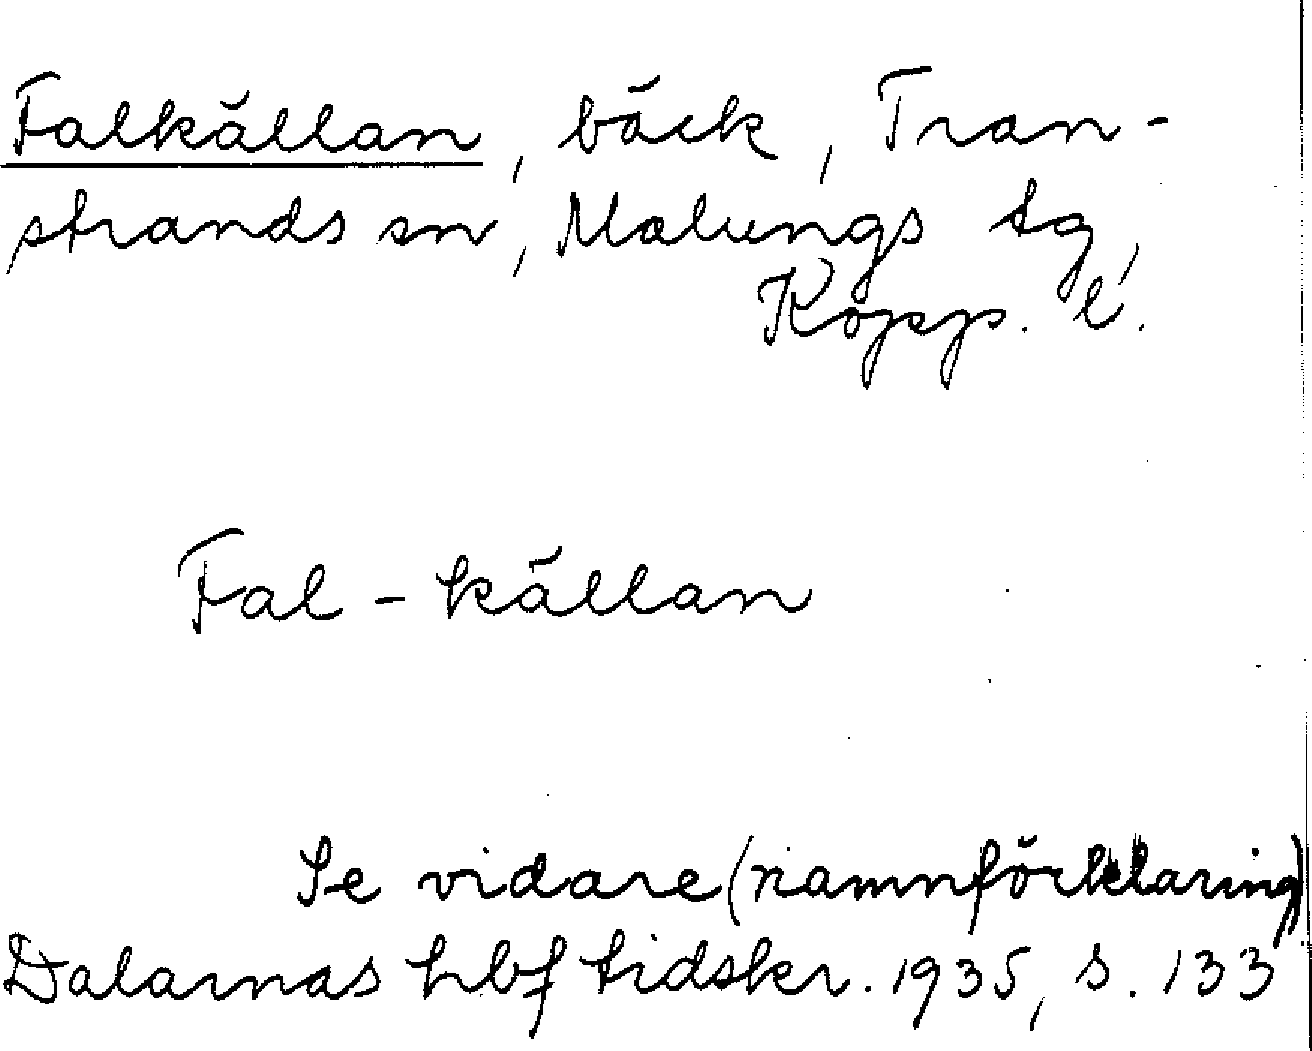 Falkällan, bäck, Tran-
strands sn, Malungs tg,
Kopp. l.
Fal - källan
Se vidare (namnförklaring)
Dalarnas hbf tidskr. 1935, s. 133